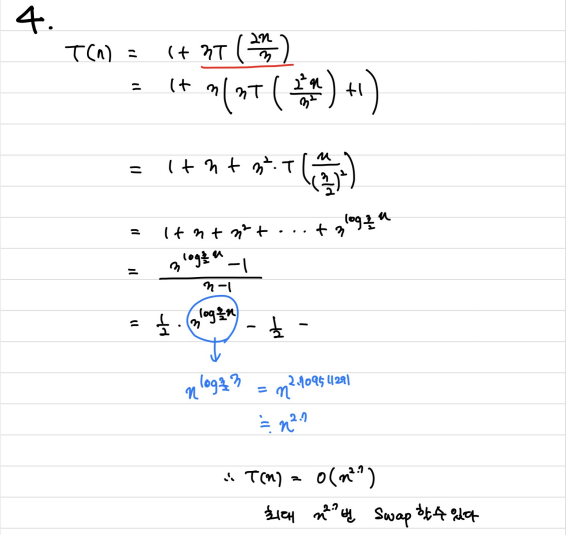 4.
T(n) = 1 + 3T(2n/3)
= 1 + 3(3T(2²n/3²) + 1)
= 1 + 3 + 3²·T(n/(3/2)²)
= 1 + 3 + 3² + ··· + 3^(log_(3/2) n)
= (3^(log_(3/2) n) - 1)/(3 - 1)
= 1/2 · 3^(log_(3/2) n) - 1/2 -
n^(log_(3/2) 3) = n^2.709511291
≒ n^2.7
∴ T(n) = O(n^2.7)
최대 n^2.7번 Swap 할 수 있다